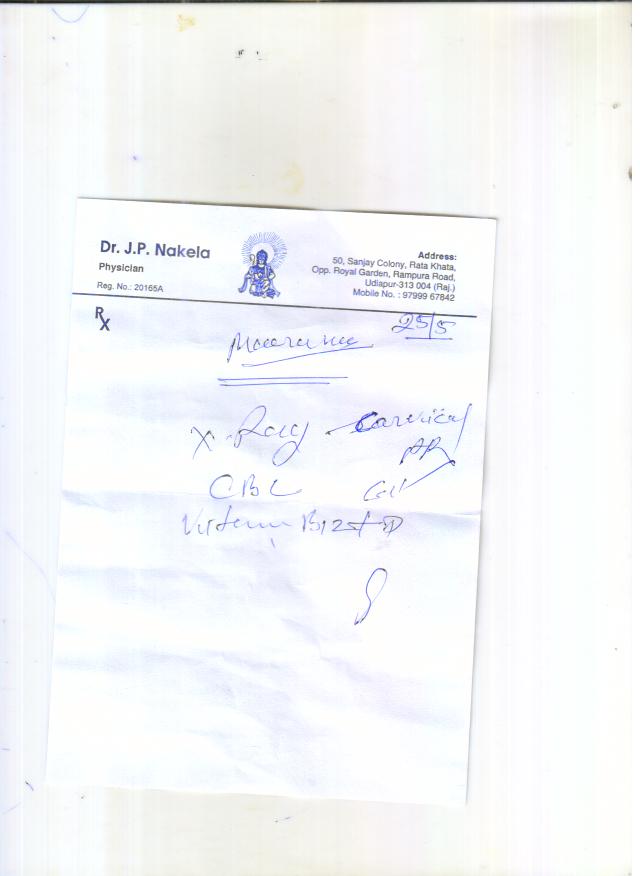 Dr. J.P. Nakela
Physician
Reg. No.: 20165A
Address:
50, Sanjay Colony, Rata Khata,
Opp. Royal Garden, Rampura Road,
Udiapur-313 004 (Raj.)
Mobile No. : 97999 67842
Rx
25/5
X-Ray - Cervical
AP
CBC
Vitamin B12 + D